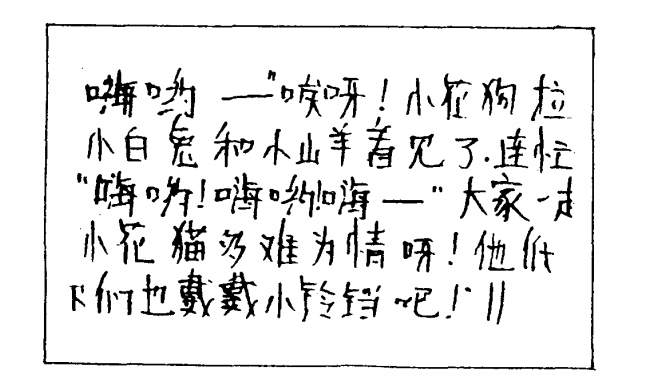 嗨哟—"唉呀！小花狗拉
小白兔和小山羊看见了.连忙
"嗨哟！嗨哟!嗨—"大家一走
小花猫多难为情呀！他低
下们也戴戴小铃铛吧！"